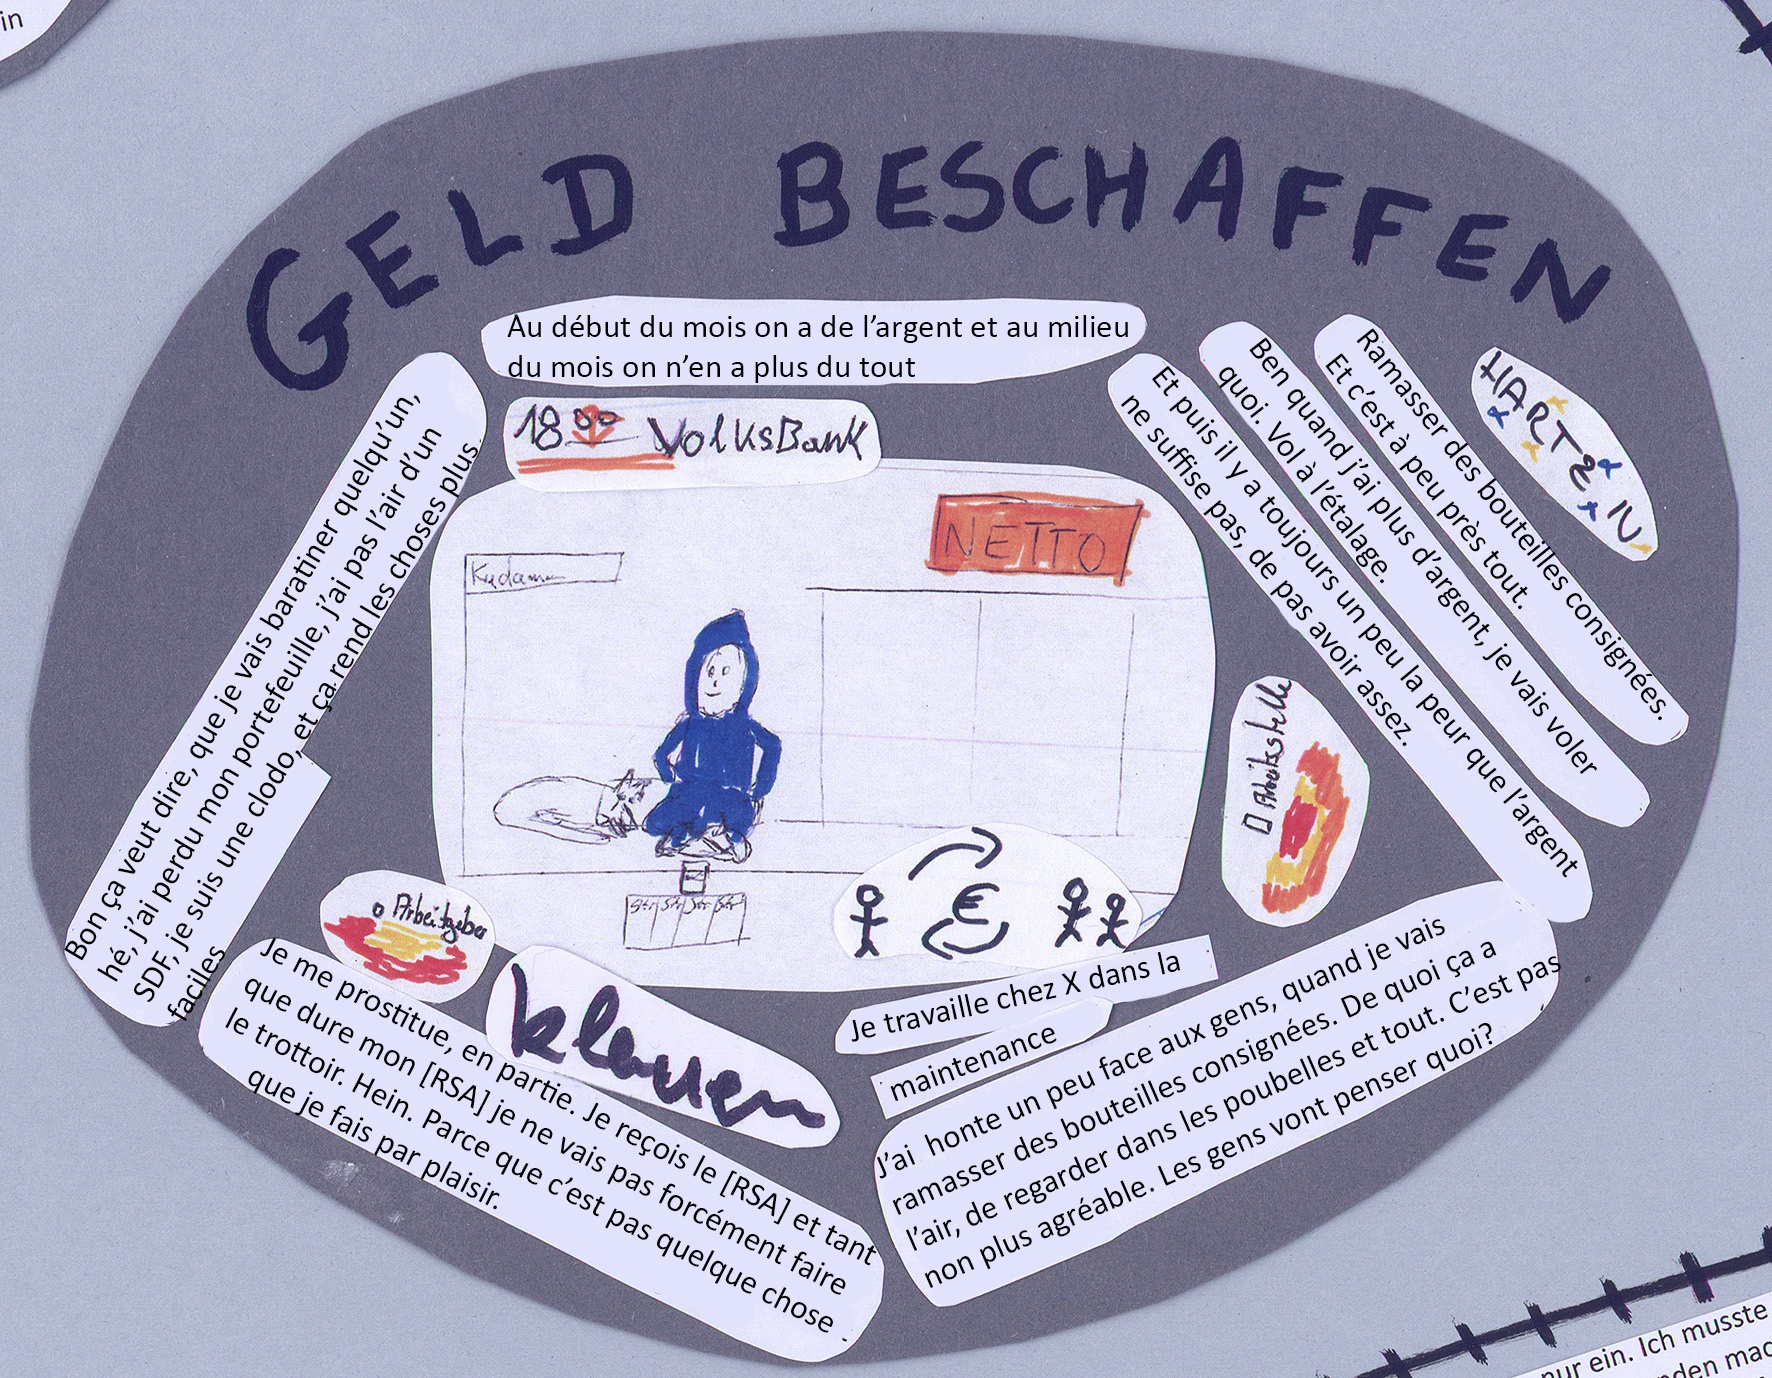 in
GELD BESCHAFFEN
Au début du mois on a de l’argent et au milieu
du mois on n’en a plus du tout
18 00 VolksBank
NETTO
Kudamm
HARTZ IV
Ramasser des bouteilles consignées.
Et c’est à peu près tout.
Ben quand j’ai plus d’argent, je vais voler
quoi. Vol à l’étalage.
Et puis il y a toujours un peu la peur que l’argent
ne suffise pas, de pas avoir assez.
Bon ça veut dire, que je vais baratiner quelqu’un,
hé, j’ai perdu mon portefeuille, j’ai pas l’air d’un
SDF, je suis une clodo, et ça rend les choses plus
faciles
Arbeitsstelle
Arbeitgeber
€
klauen
Je travaille chez X dans la
maintenance
Je me prostitue, en partie. Je reçois le [RSA] et tant
que dure mon [RSA] je ne vais pas forcément faire
le trottoir. Hein. Parce que c’est pas quelque chose
que je fais par plaisir.
J’ai honte un peu face aux gens, quand je vais
ramasser des bouteilles consignées. De quoi ça a
l’air, de regarder dans les poubelles et tout. C’est pas
non plus agréable. Les gens vont penser quoi?
nur ein. Ich musste